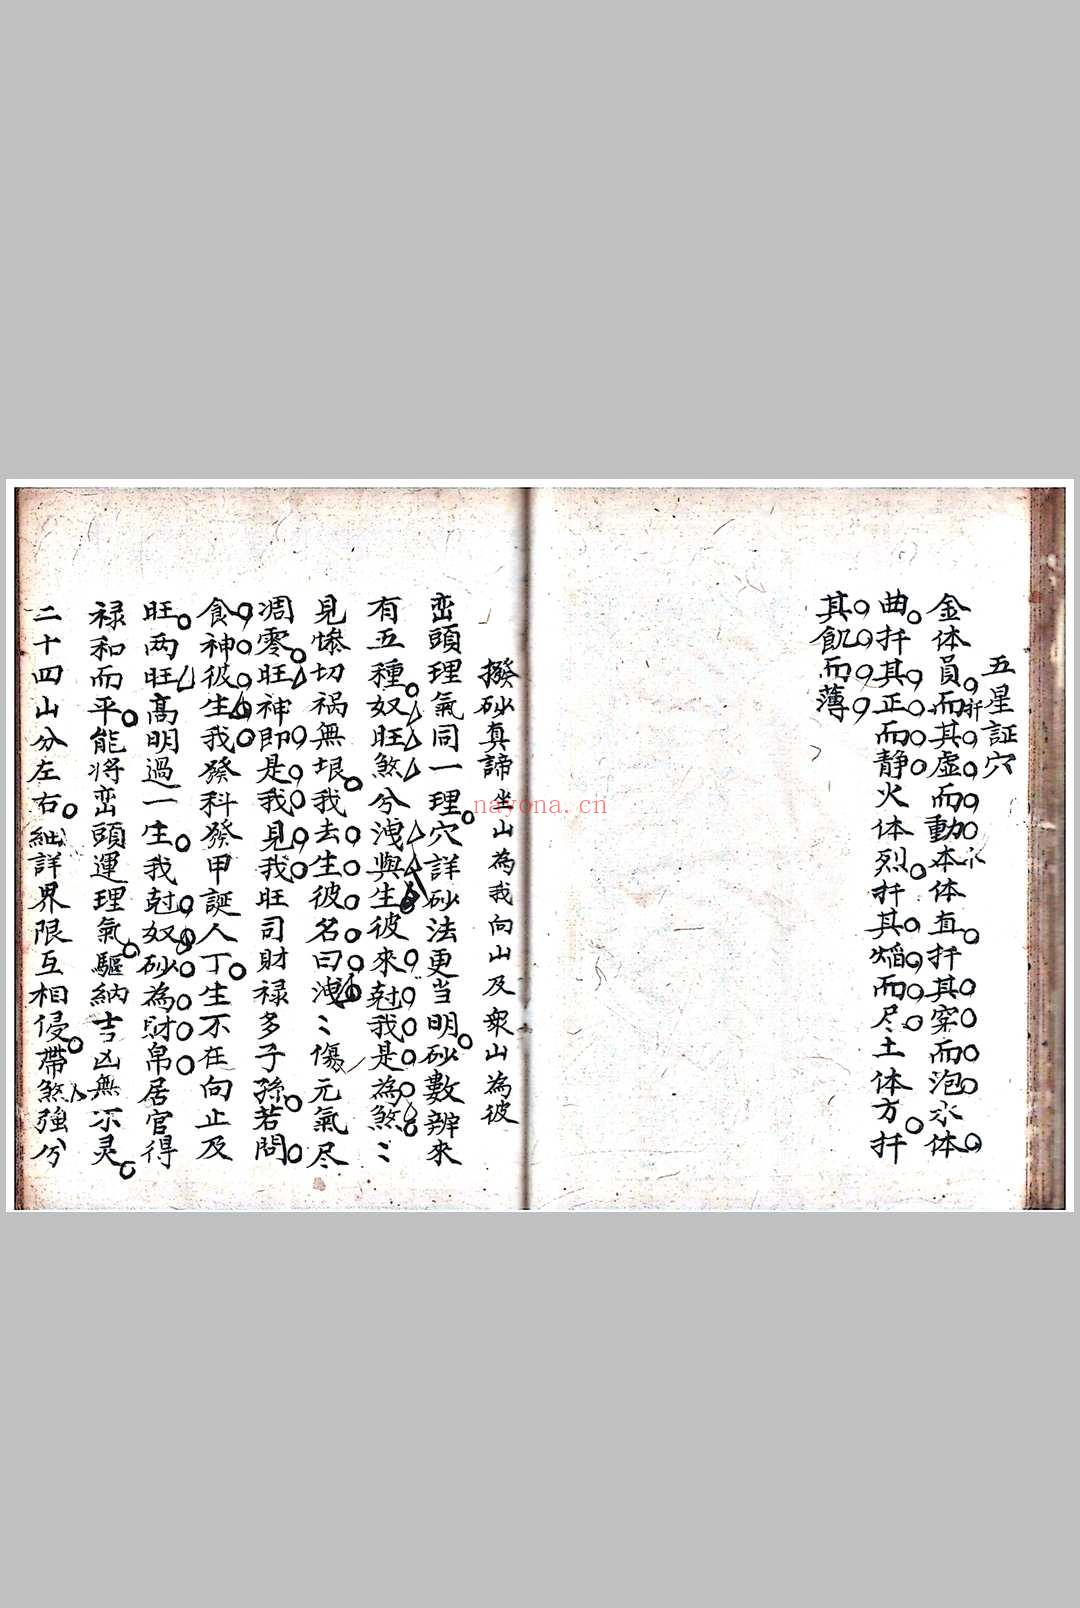 五星証穴
金体員而扦其虚而動木体直扦其窔而泡水体
曲扦其正而静火体烈扦其焰而尽土体方扦
其飢而薄
撥砂真諦坐山為我向山及衆山為彼
峦頭理氣同一理穴詳砂法更当明砂數辦來
有五種奴旺煞分洩與生彼來尅我是為煞〻
見慘切祸無垠我去生彼名曰洩〻傷元氣尽
凋零旺神即是我見我旺司財禄多子孫若問
食神彼生我發科發甲誕人丁生不在向止及
旺两旺髙明過一生我尅奴砂為財帛居官得
禄和而平能将峦頭運理氣驅納吉凶無不灵
二十四山分左右細詳界限互相侵帶煞強兮
nayona.cn